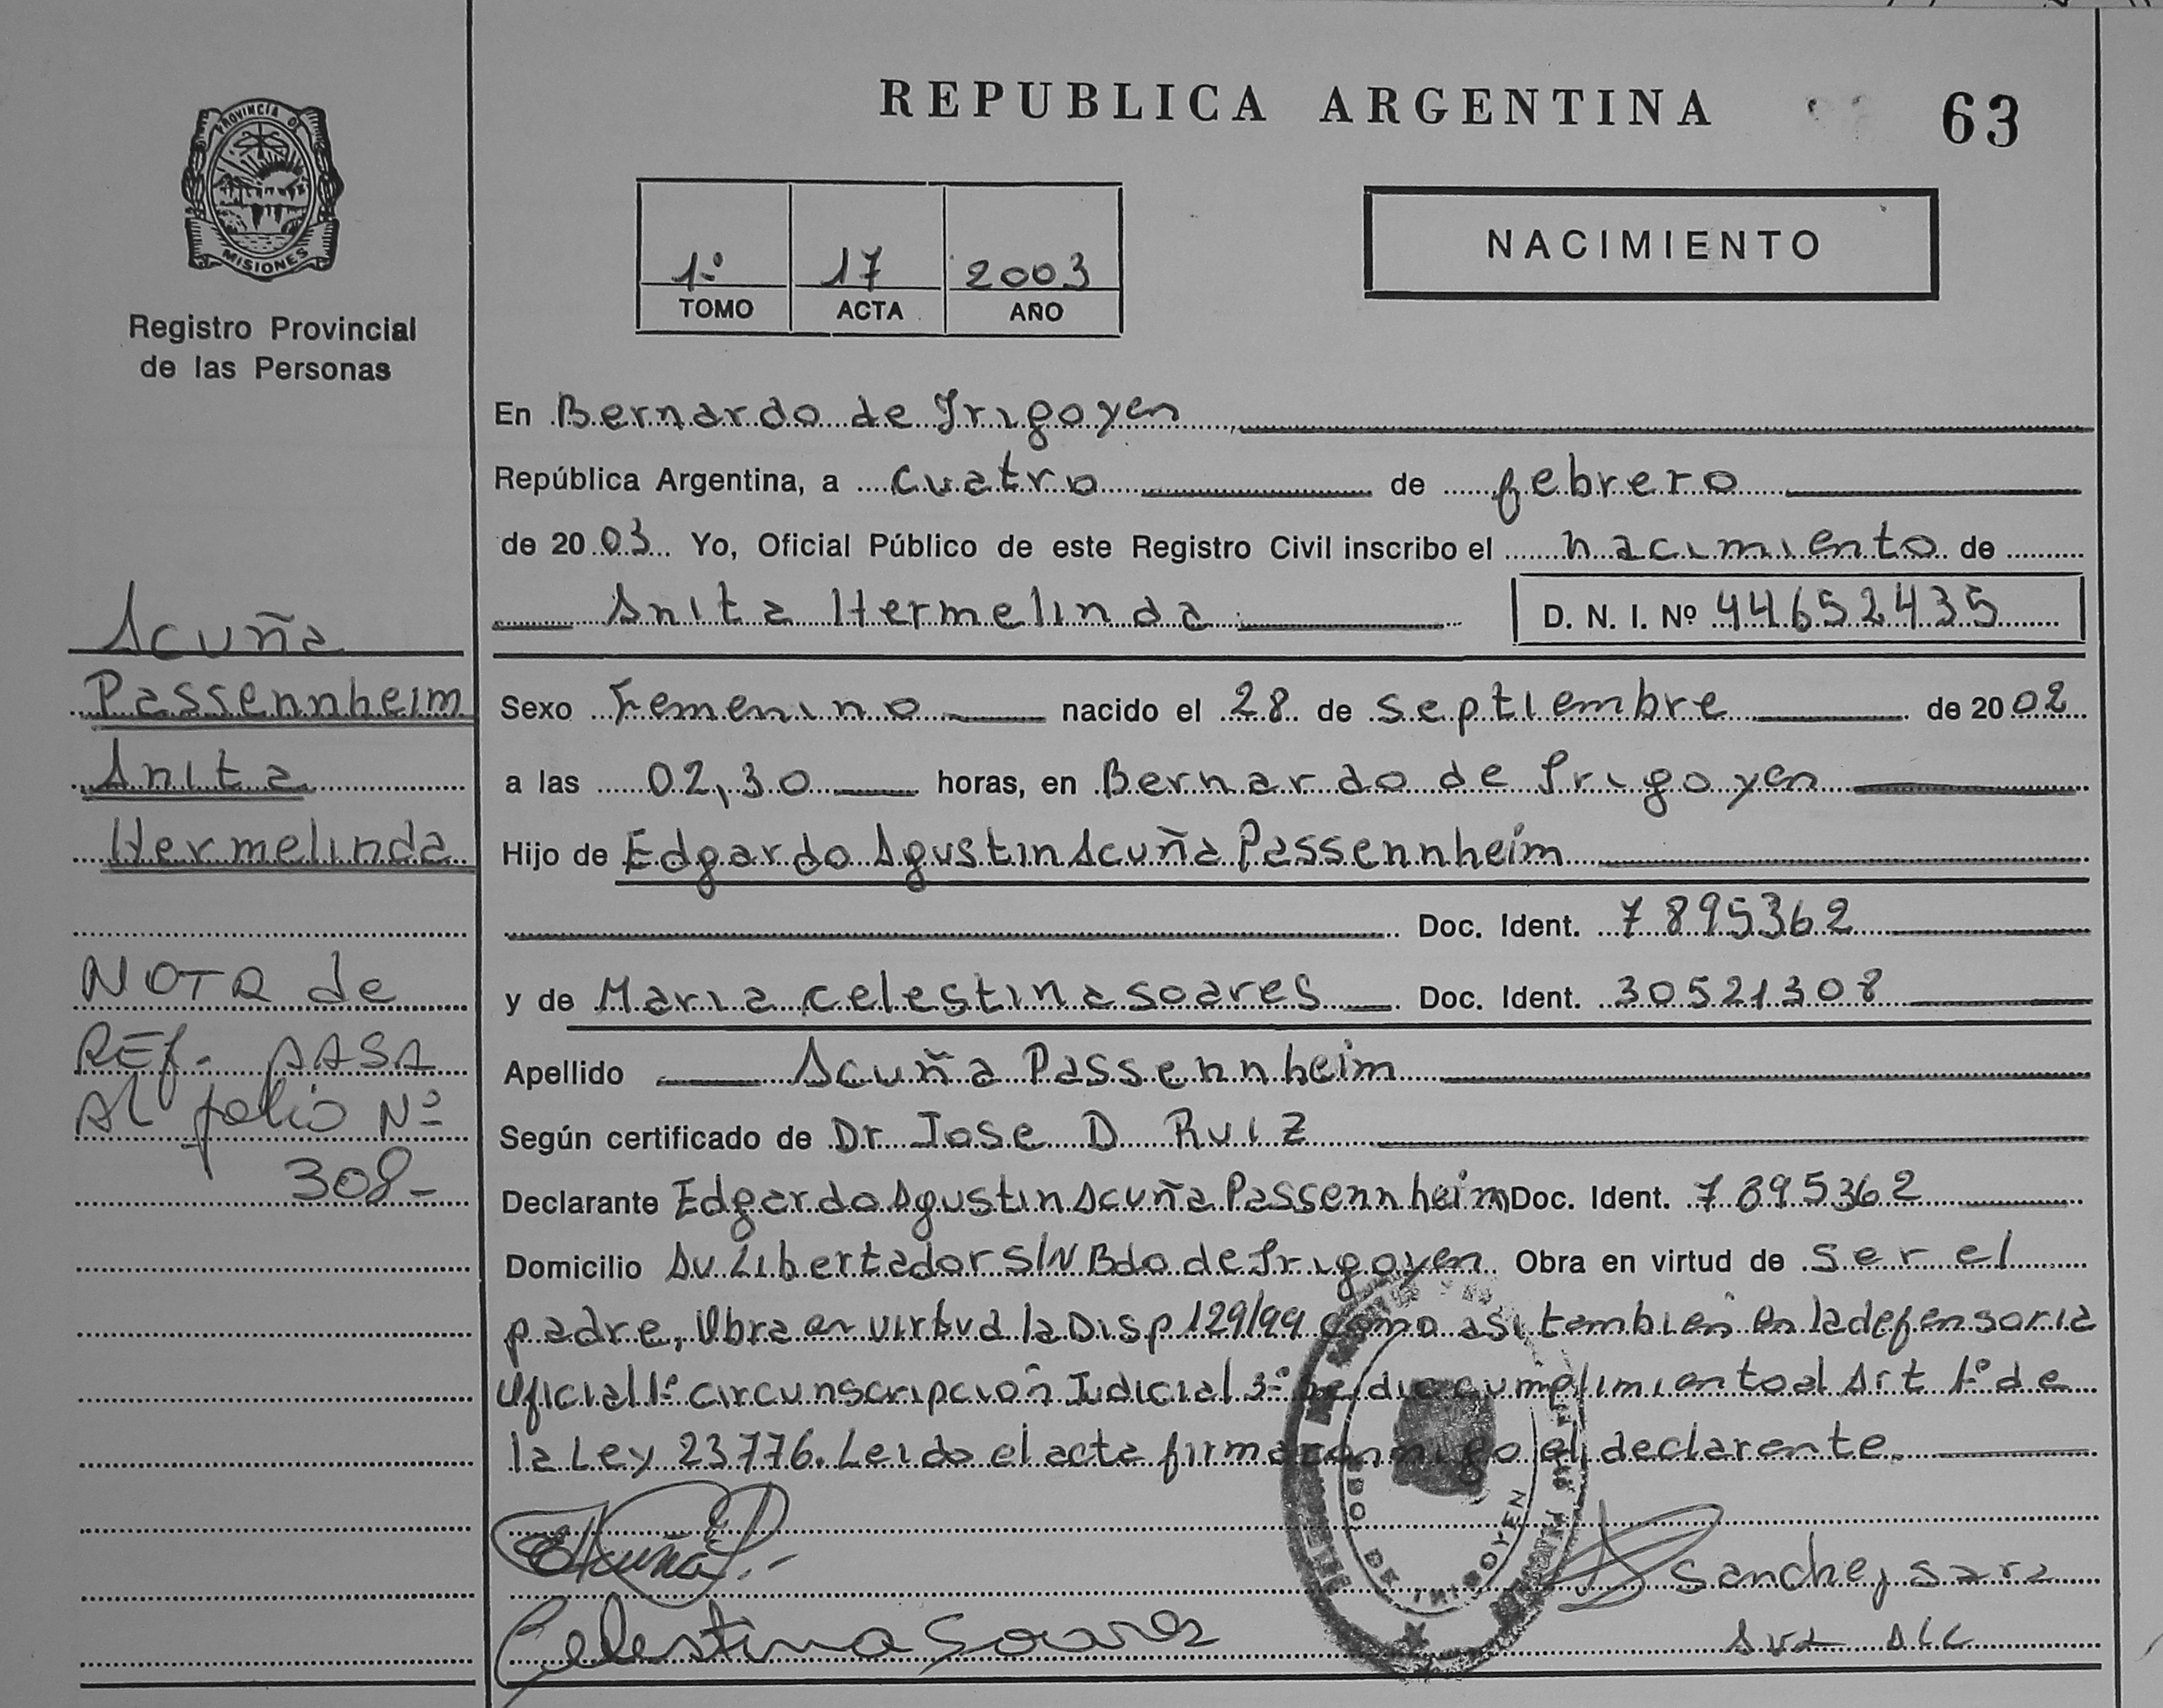 REPUBLICA ARGENTINA
63
PROVINCIA DE
MISIONES
Registro Provincial
de las Personas
1º 17 2003
TOMO ACTA AÑO
NACIMIENTO
En Bernardo de Irigoyen
República Argentina, a cuatro de febrero
de 2003 Yo, Oficial Público de este Registro Civil inscribo el nacimiento de
Anita Hermelinda D. N. I. Nº 44652435
Sexo Femenino nacido el 28 de septiembre de 2002
a las 02,30 horas, en Bernardo de Irigoyen
Hijo de Edgardo Agustin Acuña Passennheim
Doc. Ident. 7895362
y de Maria celestina soares Doc. Ident. 30521308
Apellido Acuña Passennheim
Según certificado de Dr Jose D Ruiz
Declarante Edgardo Agustin Acuña Passennheim Doc. Ident. 7895362
Domicilio Av Libertador S/N Bdo de Irigoyen Obra en virtud de ser el
padre, Obra en virtud la Disp 129/99 como asi tambien en la defensoria
Oficial 1º circunscripción Judicial 3º Se dio cumplimiento al Art 1º de
la Ley 23776. Leido el acta firma el declarante.
Acuña
Passennheim
Anita
Hermelinda
NOTA de
REF. PASA
Al folio Nº
308-
EAcuñaP.-
Celestina Soares
Sanchez sara
BDO DE IRIGOYEN